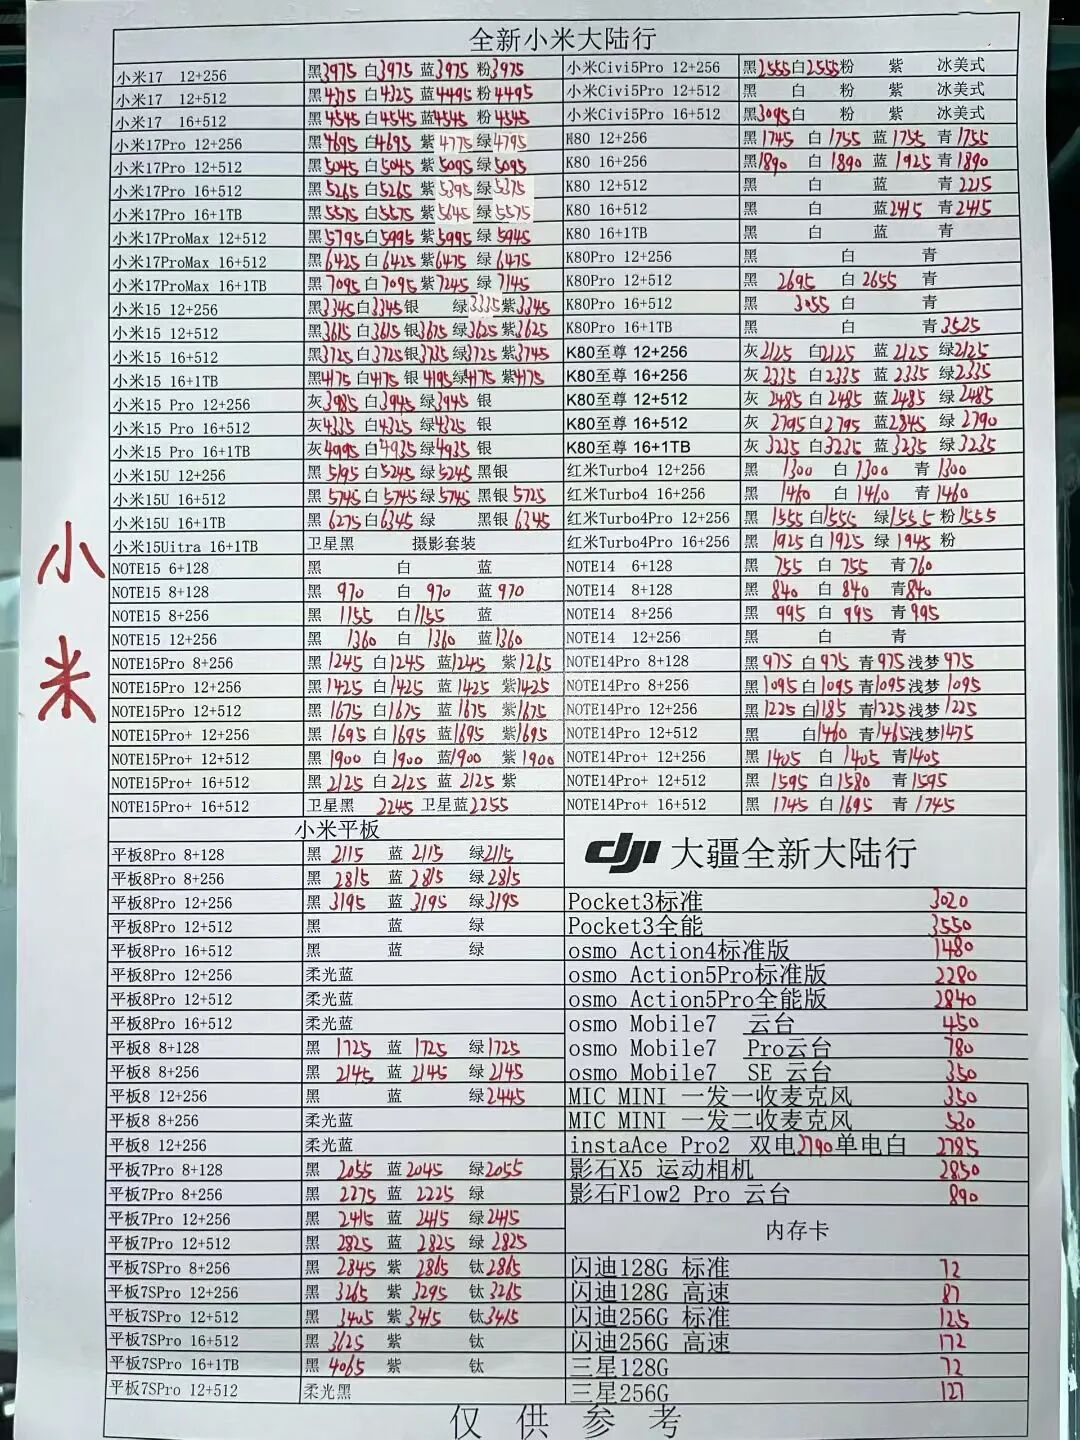 全新小米大陆行
小米17 12+256 黑3975 白3975 蓝3975 粉3975
小米17 12+512 黑4375 白4325 蓝4495 粉4495
小米17 16+512 黑4545 白4545 蓝4545 粉4545
小米17Pro 12+256 黑4695 白4695 紫4775 绿4795
小米17Pro 12+512 黑5045 白5045 紫5095 绿5095
小米17Pro 16+512 黑5265 白5265 紫5395 绿5375
小米17Pro 16+1TB 黑5575 白5575 紫5645 绿5575
小米17ProMax 12+512 黑5795 白5995 紫5995 绿5945
小米17ProMax 16+512 黑6425 白6425 紫6475 绿6475
小米17ProMax 16+1TB 黑7095 白7095 紫7245 绿7145
小米15 12+256 黑3345 白3345 银 绿3335 紫3345
小米15 12+512 黑3615 白3615 银3675 绿3625 紫3625
小米15 16+512 黑3725 白3725 银3735 绿3725 紫3745
小米15 16+1TB 黑4175 白4175 银4195 绿4175 紫4175
小米15 Pro 12+256 灰3985 白3945 绿3945 银
小米15 Pro 16+512 灰4335 白4325 绿4325 银
小米15 Pro 16+1TB 灰4995 白4935 绿4935 银
小米15U 12+256 黑5195 白5245 绿5245 黑银
小米15U 16+512 黑5745 白5745 绿5745 黑银5725
小米15U 16+1TB 黑6275 白6345 绿 黑银6345
小米15Uitra 16+1TB 卫星黑 摄影套装
NOTE15 6+128 黑 白 蓝
NOTE15 8+128 黑970 白970 蓝970
NOTE15 8+256 黑1155 白1155 蓝
NOTE15 12+256 黑1360 白1360 蓝1360
NOTE15Pro 8+256 黑1245 白1245 蓝1245 紫1265
NOTE15Pro 12+256 黑1425 白1425 蓝1425 紫1425
NOTE15Pro 12+512 黑1675 白1675 蓝1675 紫1675
NOTE15Pro+ 12+256 黑1695 白1695 蓝1695 紫1695
NOTE15Pro+ 12+512 黑1900 白1900 蓝1900 紫1900
NOTE15Pro+ 16+512 黑2125 白2125 蓝2125 紫
NOTE15Pro+ 16+512 卫星黑 2245 卫星蓝2255
小米
小米平板
平板8Pro 8+128 黑2115 蓝2115 绿2115
平板8Pro 8+256 黑2815 蓝2815 绿2815
平板8Pro 12+256 黑3195 蓝3195 绿3195
平板8Pro 12+512 黑 蓝 绿
平板8Pro 16+512 黑 蓝 绿
平板8Pro 12+256 柔光蓝
平板8Pro 12+512 柔光蓝
平板8Pro 16+512 柔光蓝
平板8 8+128 黑1725 蓝1725 绿1725
平板8 8+256 黑2145 蓝2145 绿2145
平板8 12+256 黑 蓝 绿2445
平板8 8+256 柔光蓝
平板8 12+256 柔光蓝
平板7Pro 8+128 黑2055 蓝2045 绿2055
平板7Pro 8+256 黑2275 蓝2225 绿
平板7Pro 12+256 黑2415 蓝2415 绿2415
平板7Pro 12+512 黑2825 蓝2825 绿2825
平板7SPro 8+256 黑2845 紫2865 钛2865
平板7SPro 12+256 黑3265 紫3295 钛3265
平板7SPro 12+512 黑3405 紫3415 钛3415
平板7SPro 16+512 黑3625 紫 钛
平板7SPro 16+1TB 黑4065 紫 钛
平板7SPro 12+512 柔光黑
小米Civi5Pro 12+256 黑2555 白2555 粉 紫 冰美式
小米Civi5Pro 12+512 黑 白 粉 紫 冰美式
小米Civi5Pro 16+512 黑3095 白 粉 紫 冰美式
K80 12+256 黑1745 白1755 蓝1755 青1755
K80 16+256 黑1890 白1890 蓝1925 青1890
K80 12+512 黑 白 蓝 青2215
K80 16+512 黑 白 蓝2415 青2415
K80 16+1TB 黑 白 蓝 青
K80Pro 12+256 黑 白 青
K80Pro 12+512 黑2695 白2655 青
K80Pro 16+512 黑3055 白 青
K80Pro 16+1TB 黑 白 青3525
K80至尊 12+256 灰2125 白2125 蓝2125 绿2125
K80至尊 16+256 灰2335 白2335 蓝2335 绿2335
K80至尊 12+512 灰2485 白2485 蓝2485 绿2485
K80至尊 16+512 灰2795 白2795 蓝2845 绿2790
K80至尊 16+1TB 灰3235 白3235 蓝3235 绿3235
红米Turbo4 12+256 黑1300 白1300 青1300
红米Turbo4 16+256 黑1460 白1460 青1460
红米Turbo4Pro 12+256 黑1555 白1555 绿1555 粉1555
红米Turbo4Pro 16+256 黑1925 白1925 绿1945 粉
NOTE14 6+128 黑755 白755 青760
NOTE14 8+128 黑840 白840 青840
NOTE14 8+256 黑995 白995 青995
NOTE14 12+256 黑 白 青
NOTE14Pro 8+128 黑975 白975 青975 浅梦975
NOTE14Pro 8+256 黑1095 白1095 青1095 浅梦1095
NOTE14Pro 12+256 黑1225 白1185 青1225 浅梦1225
NOTE14Pro 12+512 黑 白1460 青1465 浅梦1475
NOTE14Pro+ 12+256 黑1405 白1405 青1405
NOTE14Pro+ 12+512 黑1595 白1580 青1595
NOTE14Pro+ 16+512 黑1745 白1695 青1745
dji 大疆全新大陆行
Pocket3标准 3020
Pocket3全能 3550
osmo Action4标准版 1480
osmo Action5Pro标准版 2280
osmo Action5Pro全能版 2840
osmo Mobile7 云台 450
osmo Mobile7 Pro云台 780
osmo Mobile7 SE 云台 350
MIC MINI 一发一收麦克风 350
MIC MINI 一发二收麦克风 530
instaAce Pro2 双电2790单电白 2785
影石X5 运动相机 2850
影石Flow2 Pro 云台 890
内存卡
闪迪128G 标准 72
闪迪128G 高速 87
闪迪256G 标准 125
闪迪256G 高速 172
三星128G 72
三星256G 127
仅供参考